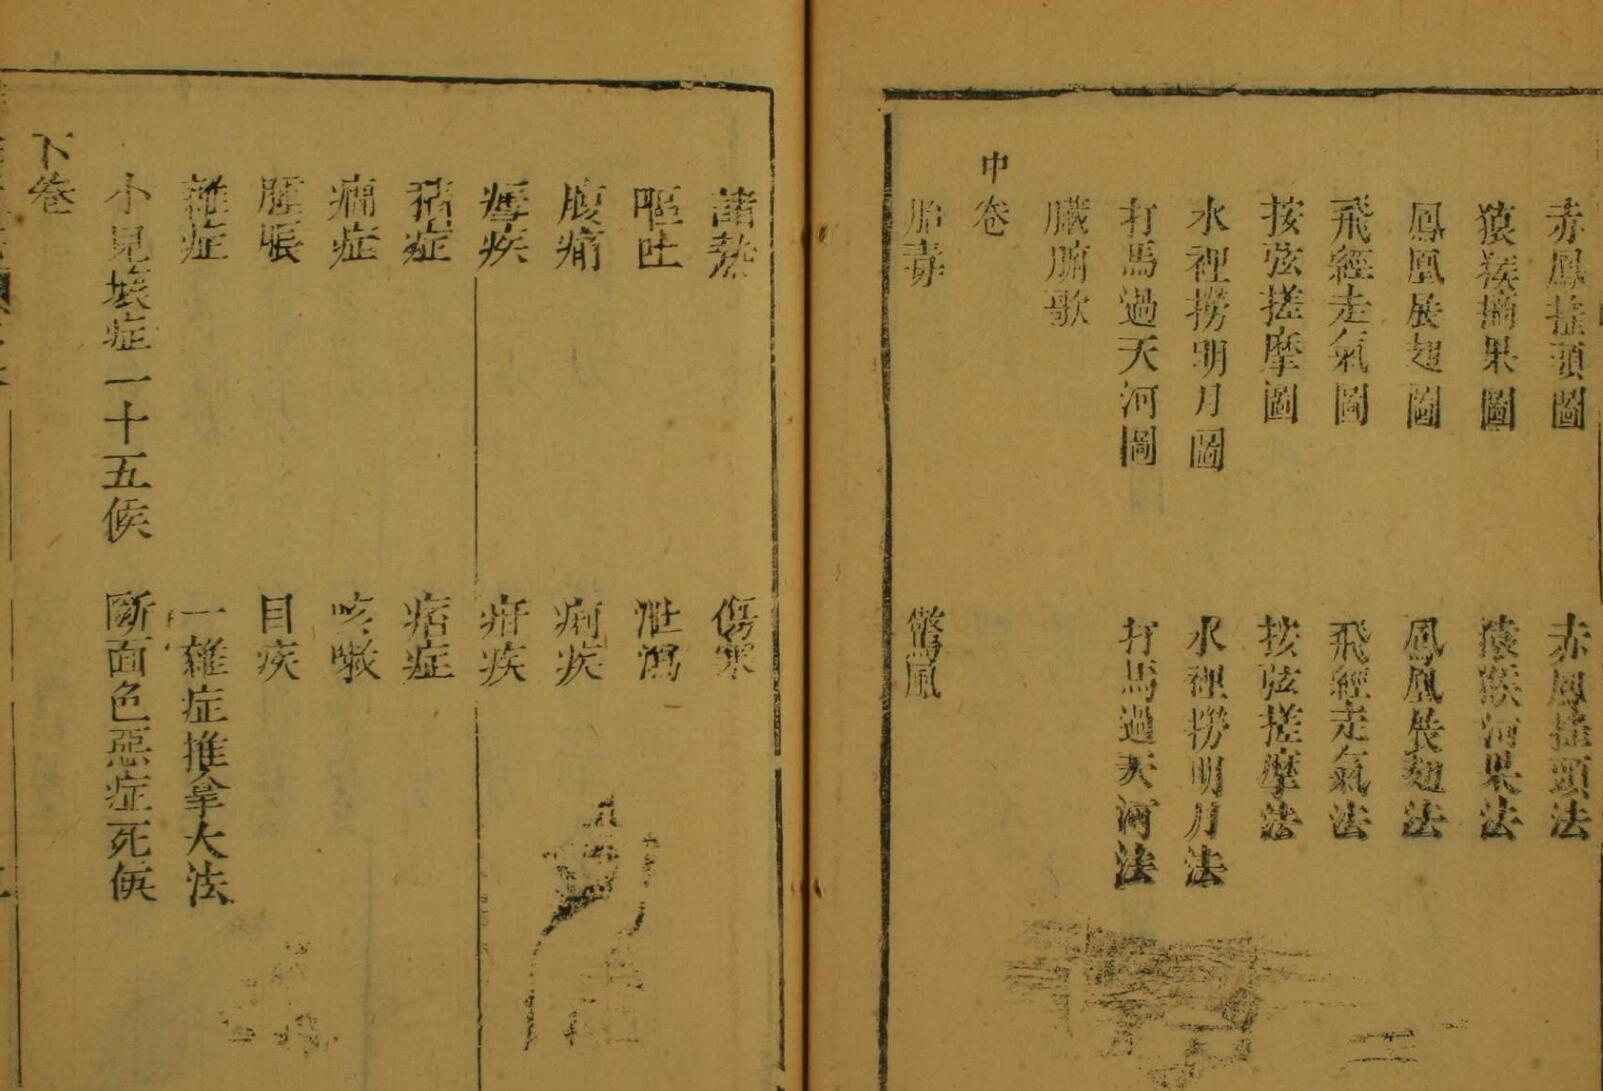 赤鳳搖頭圖 赤鳳搖頭法
猿猴摘果圖 猿猴河果法
鳳凰展翅圖 鳳凰展翅法
飛經走氣圖 飛經走氣法
按弦搓摩圖 按弦搓摩法
水裡撈明月圖 水裡撈明月法
打馬過天河圖 打馬過天河法
臟腑歌
中卷
胎毒 驚風
諸熱 傷寒
嘔吐 泄瀉
腹痛 痢疾
瘧疾 疳疾
積症 痞症
癇症 咳嗽
脹 目疾
雜症 一雜症推拿大法
小兒壞症一十五候 斷面色惡症死候
下卷
二